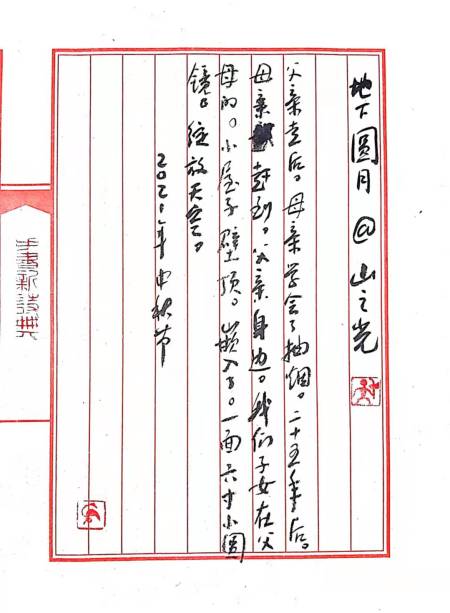 地下圆月@山之光
父亲走后。母亲学会了抽烟。二十五年后。
母亲赶到。父亲身边。我们子女在父
母的。小屋子壁顶。嵌入了。一面六寸小圆
镜。绽放天空。
2021年中秋节
手书新诗典